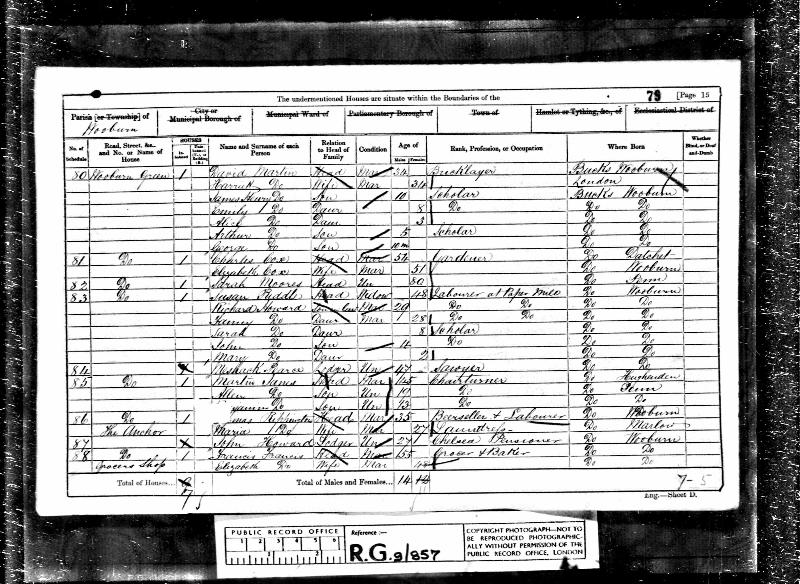 The undermentioned Houses are situate within the Boundaries of the
79 [Page 15
Parish [or Township] of
City or Municipal Borough of
Municipal Ward of
Parliamentary Borough of
Town of
Hamlet or Tything, &c., of
Ecclesiastical District of
Wooburn
No. of Schedule
Road, Street, &c., and No. or Name of House
HOUSES
Name and Surname of each Person
Relation to Head of Family
Condition
Age of
Males Females
Rank, Profession, or Occupation
Where Born
Whether Blind, or Deaf-and-Dumb
80 Wooburn Green 1 David Martin Head Mar 34 Bricklayer Bucks Wooburn
Harriet Do Wife Mar 34 London
James Henry Do Son 10 Scholar Bucks Wooburn
Emily Do Daur 8 Do Do Do
Alice Do Daur 3 Do Do
Arthur Do Son 5 Scholar Do Do
George Do Son 10m Do Do
81 Do 1 Charles Cox Head Mar 54 Gardener Do Datchet
Elizabeth Cox Wife Mar 51 Do Wooburn
82 Do 1 Sarah Moores Head Un 80 Do Penn
83 Do 1 Susan Piddle Head Widow 48 Labourer at Paper Mill Do Wooburn
Richard Howard Mar 29 Do Do Do Do
Do Daur Mar 28 Do Do Do Do
Sarah Do Daur 8 Scholar Do Do
John Do Son 4 Do Do Do
Mary Do Daur 2 Do Do
84 Meshack Pearce Lodger Un 47 Sawyer Do Do
85 Do 1 Martin Janes Head Mar 45 Chairturner Do Hughenden
Allen Do Son Un 19 Do Do Penn
James Do Son Un 13 Do Do Do
86 Do 1 Rippington Head Mar 35 Beerseller & Labourer Do Wooburn
The Anchor Maria Do Wife Mar 27 Laundress Do Marlow
87 John Howard Lodger Un 27 Chelsea Pensioner Do Wooburn
88 Do 1 Francis Francis Head Mar 55 Grocer & Baker Do Do
Grocers Shop Elizabeth Do Wife Mar 48 Do Do
Total of Houses... 7
Total of Males and Females... 14
7-5
Eng.—Sheet D.
PUBLIC RECORD OFFICE
1 2 3 4 5 6
1 2
Reference:—
R.G. 9/857
COPYRIGHT PHOTOGRAPH—NOT TO
BE REPRODUCED PHOTOGRAPHIC-
ALLY WITHOUT PERMISSION OF THE
PUBLIC RECORD OFFICE, LONDON